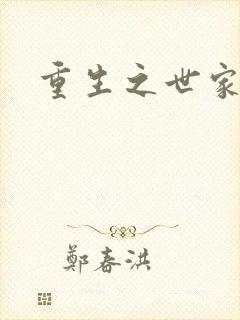 重生之世家
鄭春洪